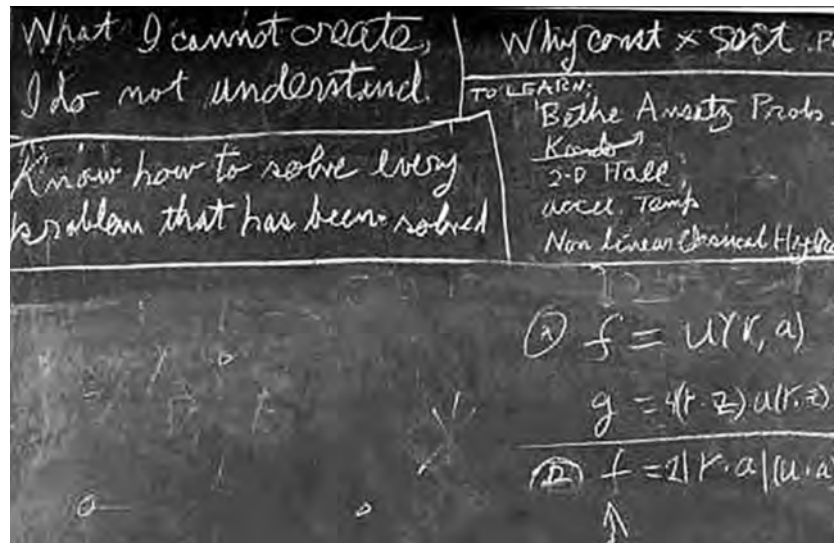 What I cannot create,
I do not understand.
Know how to solve every
problem that has been solved
Why const × sort . P
TO LEARN:
Bethe Ansatz Probs.
Kondo
2-D Hall
accel. Temp
Non linear Classical Hydro
f = U(r, a)
g = 4(r·z) u(r·z)
f = 2|r·a|(u·a)